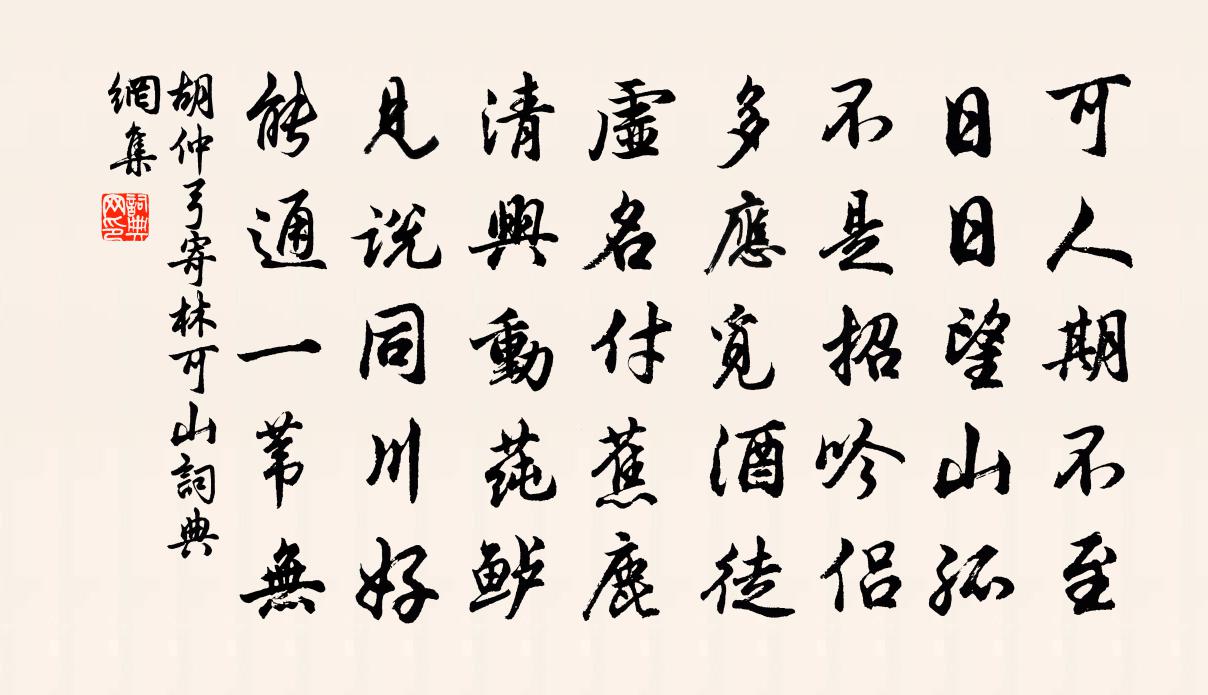 可人期不至
日日望山孤
不是招吟侣
多應覓酒徒
虛名付蕉鹿
清興動蒓鲈
見説同川好
能通一苇無
胡仲弓寄林可山詞典
網集
詞典
网印